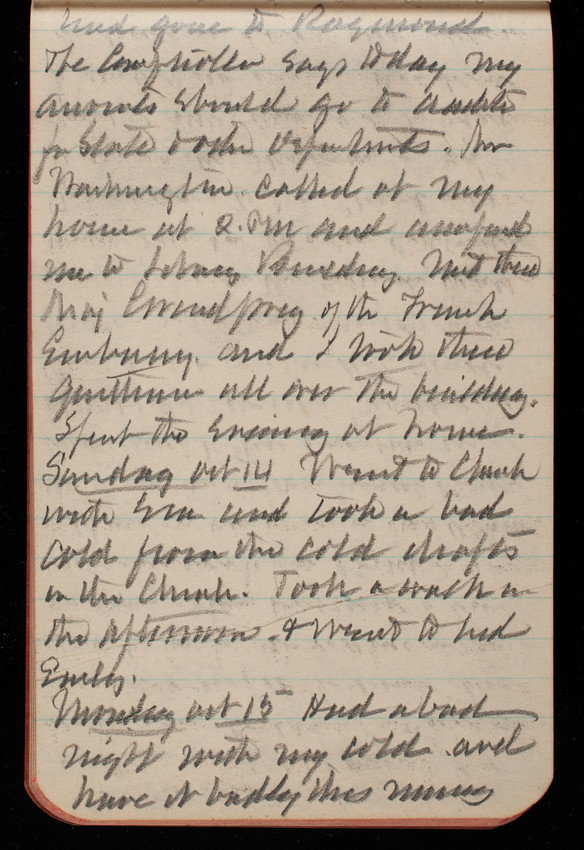 had gone to Raymond.
The Comptroller says today my
accounts should go to Auditor
for State & other Departments. Mr
Washington called at my
home at 2. PM and
me to Library Building. Met there
Maj of the French
Embassy and I took these
gentlemen all over the building.
Spent the Evening at home.
Sunday Oct 14 Went to Church
with Eva and took a bad
cold from the cold drafts
in the Church. Took a walk in
the afternoon & went to bed
Early.
Monday Oct 15 Had a bad
night with my cold and
have it badly this morning